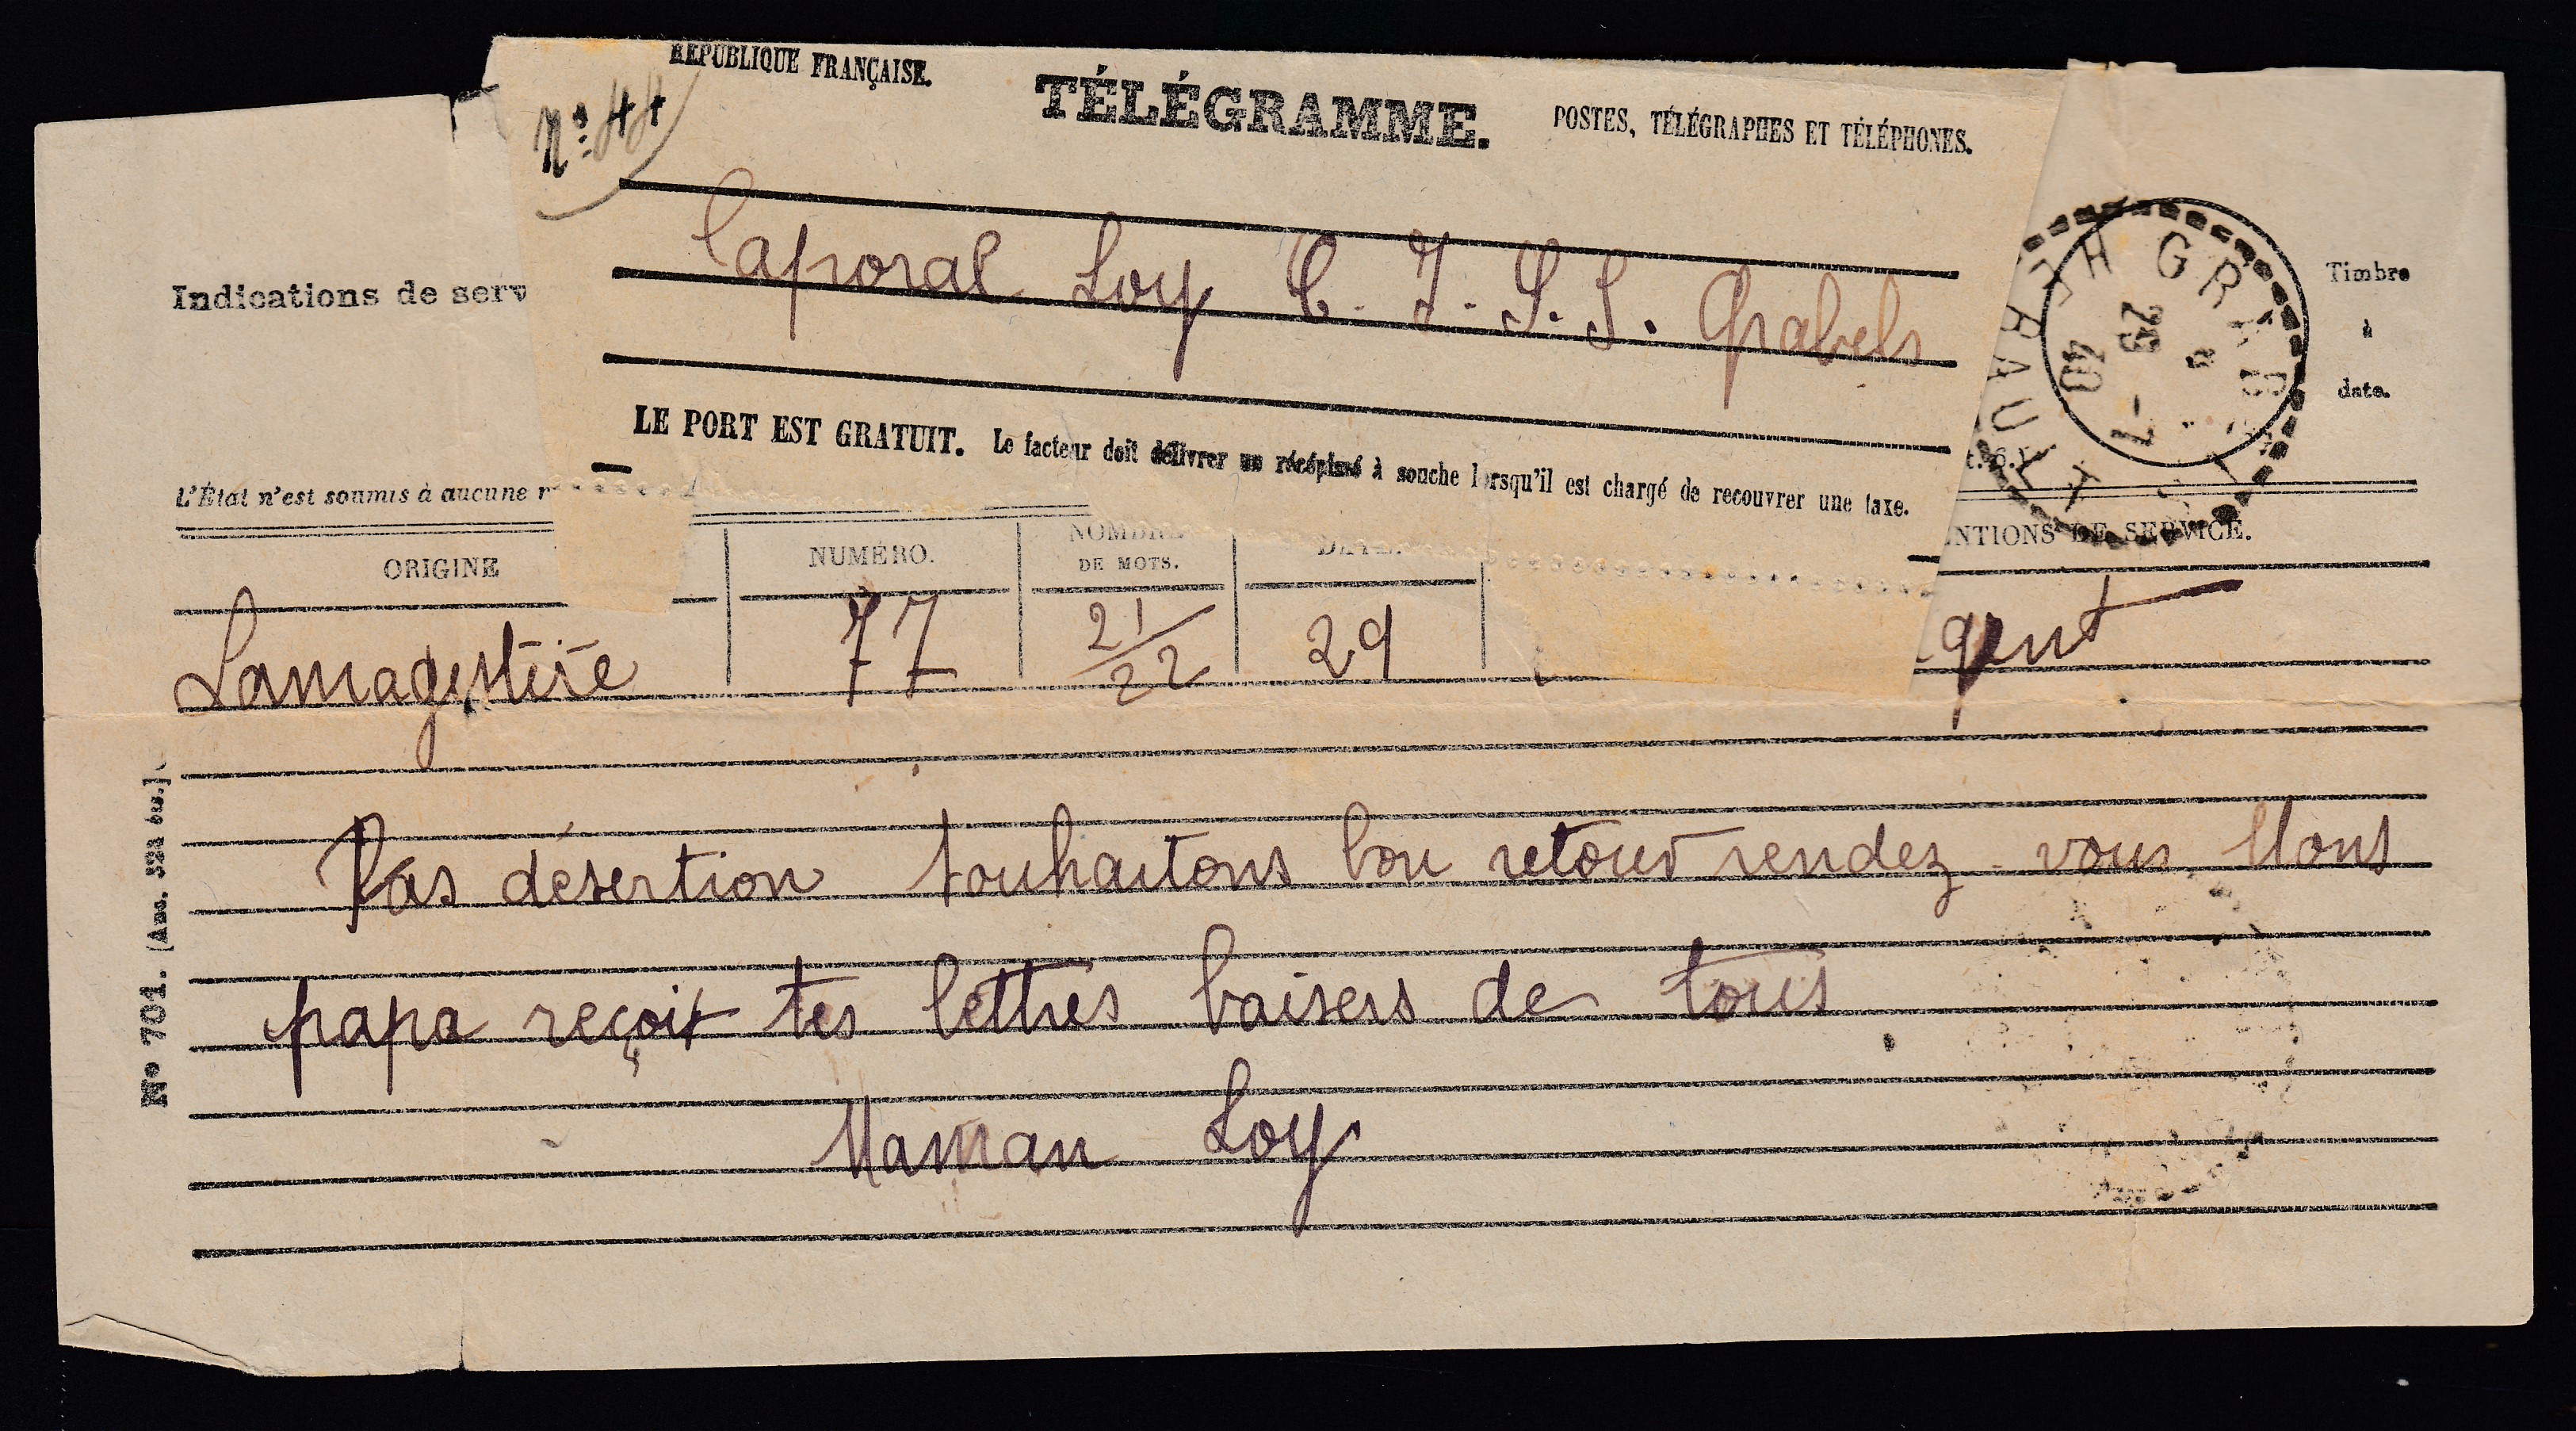 RÉPUBLIQUE FRANÇAISE.
TÉLÉGRAMME.
POSTES, TÉLÉGRAPHES ET TÉLÉPHONES.
N° 44
Caporal Loy C. I. S. S. Grabels
LE PORT EST GRATUIT. Le facteur doit délivrer un récépissé à souche lorsqu'il est chargé de recouvrer une taxe.
Indications de serv
Timbre
à
date.
GRABELS
HÉRAULT
29-7
40
L'État n'est soumis à aucune r
ORIGINE
NUMÉRO.
NOMBRE
DE MOTS.
DATE.
NTIONS DE SERVICE.
Lamagistère
77
21/22
29
gent
Pas désertion souhaitons bon retour rendez-vous Mons
papa reçoit tes lettres baisers de tous
Maman Loy
N° 701.